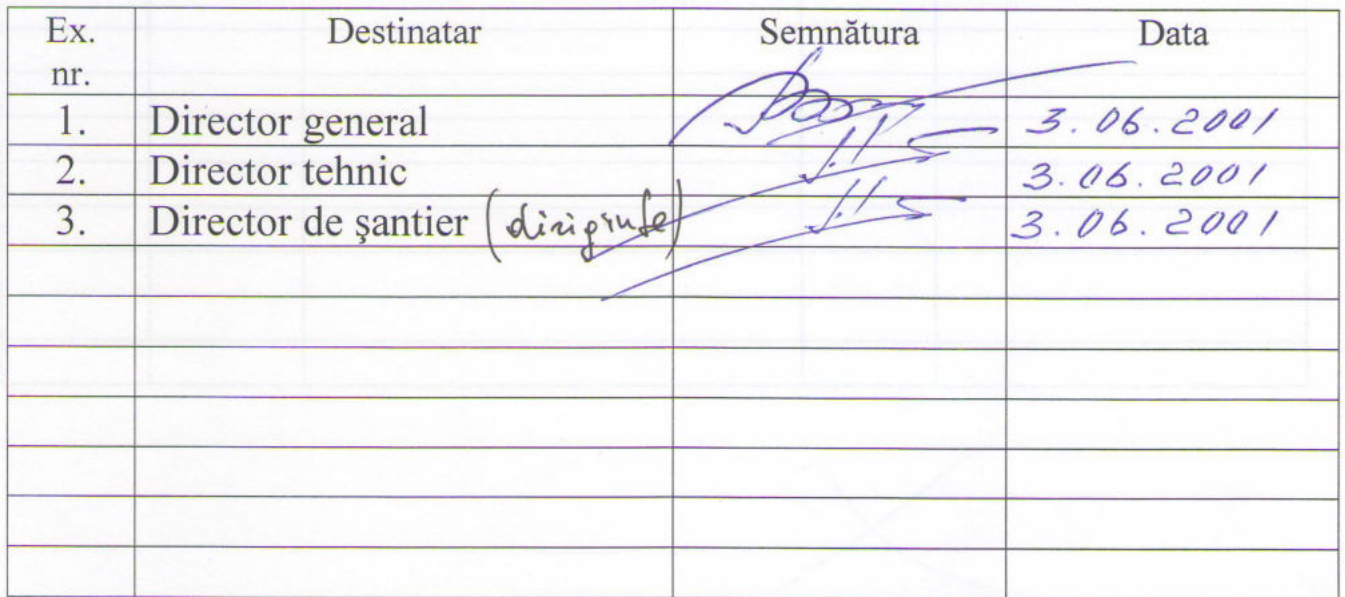 Ex. nr. Destinatar Semnătura Data
1. Director general 3.06.2001
2. Director tehnic 3.06.2001
3. Director de şantier (diriginte) 3.06.2001